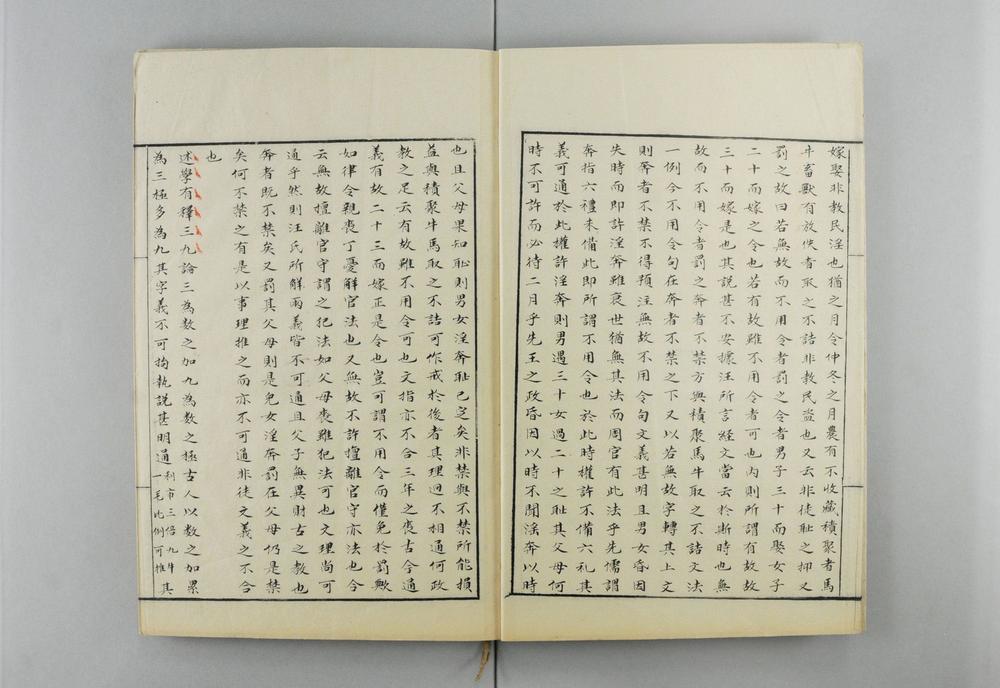 嫁娶非教民淫也猶之月令仲冬之月農有不收藏積聚者馬
牛畜獸有放佚者取之不詰非教民盜也又云非徒恥之抑又
罰之故曰若無故而不用令者罰之令者男子三十而娶女子
二十而嫁之令也若有故雖不用令者可也內則所謂有故
三十而嫁是也其說甚不安據汪所言經文當云於斯時也無
故而不用令者罰之奔者不禁方與積聚馬牛取之不詰文法
一例今不用令句在奔者不禁之下又以若無故字轉其上文
則奔者不禁不得預注無故不用令句文義甚明且男女昏因
失時而即許淫奔雖衰世猶無其法而周官有此法乎先儒謂
奔指六禮未備此即所謂不用令也於此時權許不備六礼其
義可通於此權許淫奔則男遇三十女過二十之恥其父母何
時不可許而必待二月乎先王之政昏因以時不聞淫奔以時
也且父母果知恥則男女淫奔恥已定矣非禁與不禁所能損
益與積聚牛馬取之不詰可作戒於後者其理迥不相通何政
教之足云有故雖不用令可也文指亦不合三年之喪古今通
義有故二十三而嫁正是令也豈可謂不用令而僅免於罰歟
如律令親喪丁憂解官法也又無故不許擅離官守亦法也今
云無故擅離官守謂之犯法如父母喪雖犯法可也文理尚可
通乎然則汪氏所解兩義皆不可通且父子無異財古之教也
奔者既不禁矣又罰其父母則是免女淫奔罰在父母仍是禁
矣何不禁之有是以事理推之而亦不可通非徒文義之不合
也
述學有釋三九論三為數之加九為數之極古人以數之加累
為三極多為九其字義不可拘執說甚明通利市三倍九牛一毛比例可推其